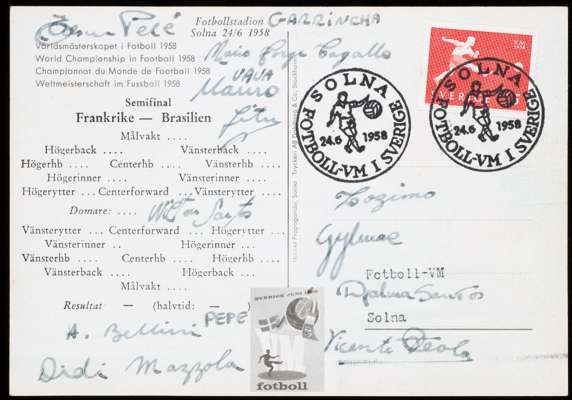 Pelé
Fotbollstadion
Solna 24/6 1958
GARRINCHA
Världsmästerskapet i Fotboll 1958
World Championship in Football 1958
Championnat du Monde de Football 1958
Weltmeisterschaft im Fussball 1958
Mario Jorge Zagallo
VAVA
Mauro
Semifinal
Frankrike — Brasilien
Målvakt ....
Högerback .... Vänsterback ....
Högerhb .... Centerhb .... Vänsterhb ....
Högerinner .... Vänsterinner ....
Högerytter .... Centerforward .... Vänsterytter ....
Domare: .... Nilton Santos
Vänsterytter .... Centerforward .... Högerytter ....
Vänsterinner .. Högerinner ....
Vänsterhb .... Centerhb .... Högerhb ....
Vänsterback .... Högerback ....
Målvakt ....
Resultat — (halvtid: — )
PEPE
A. Bellini
Didi Mazzola
fotboll
SVERIGE
SOLNA
24.6 1958
FOTBOLL-VM I SVERIGE
SOLNA
24.6 1958
FOTBOLL-VM I SVERIGE
Zozimo
Gylmar
Fotboll-VM
Djalma Santos
Solna
Vicente Feola